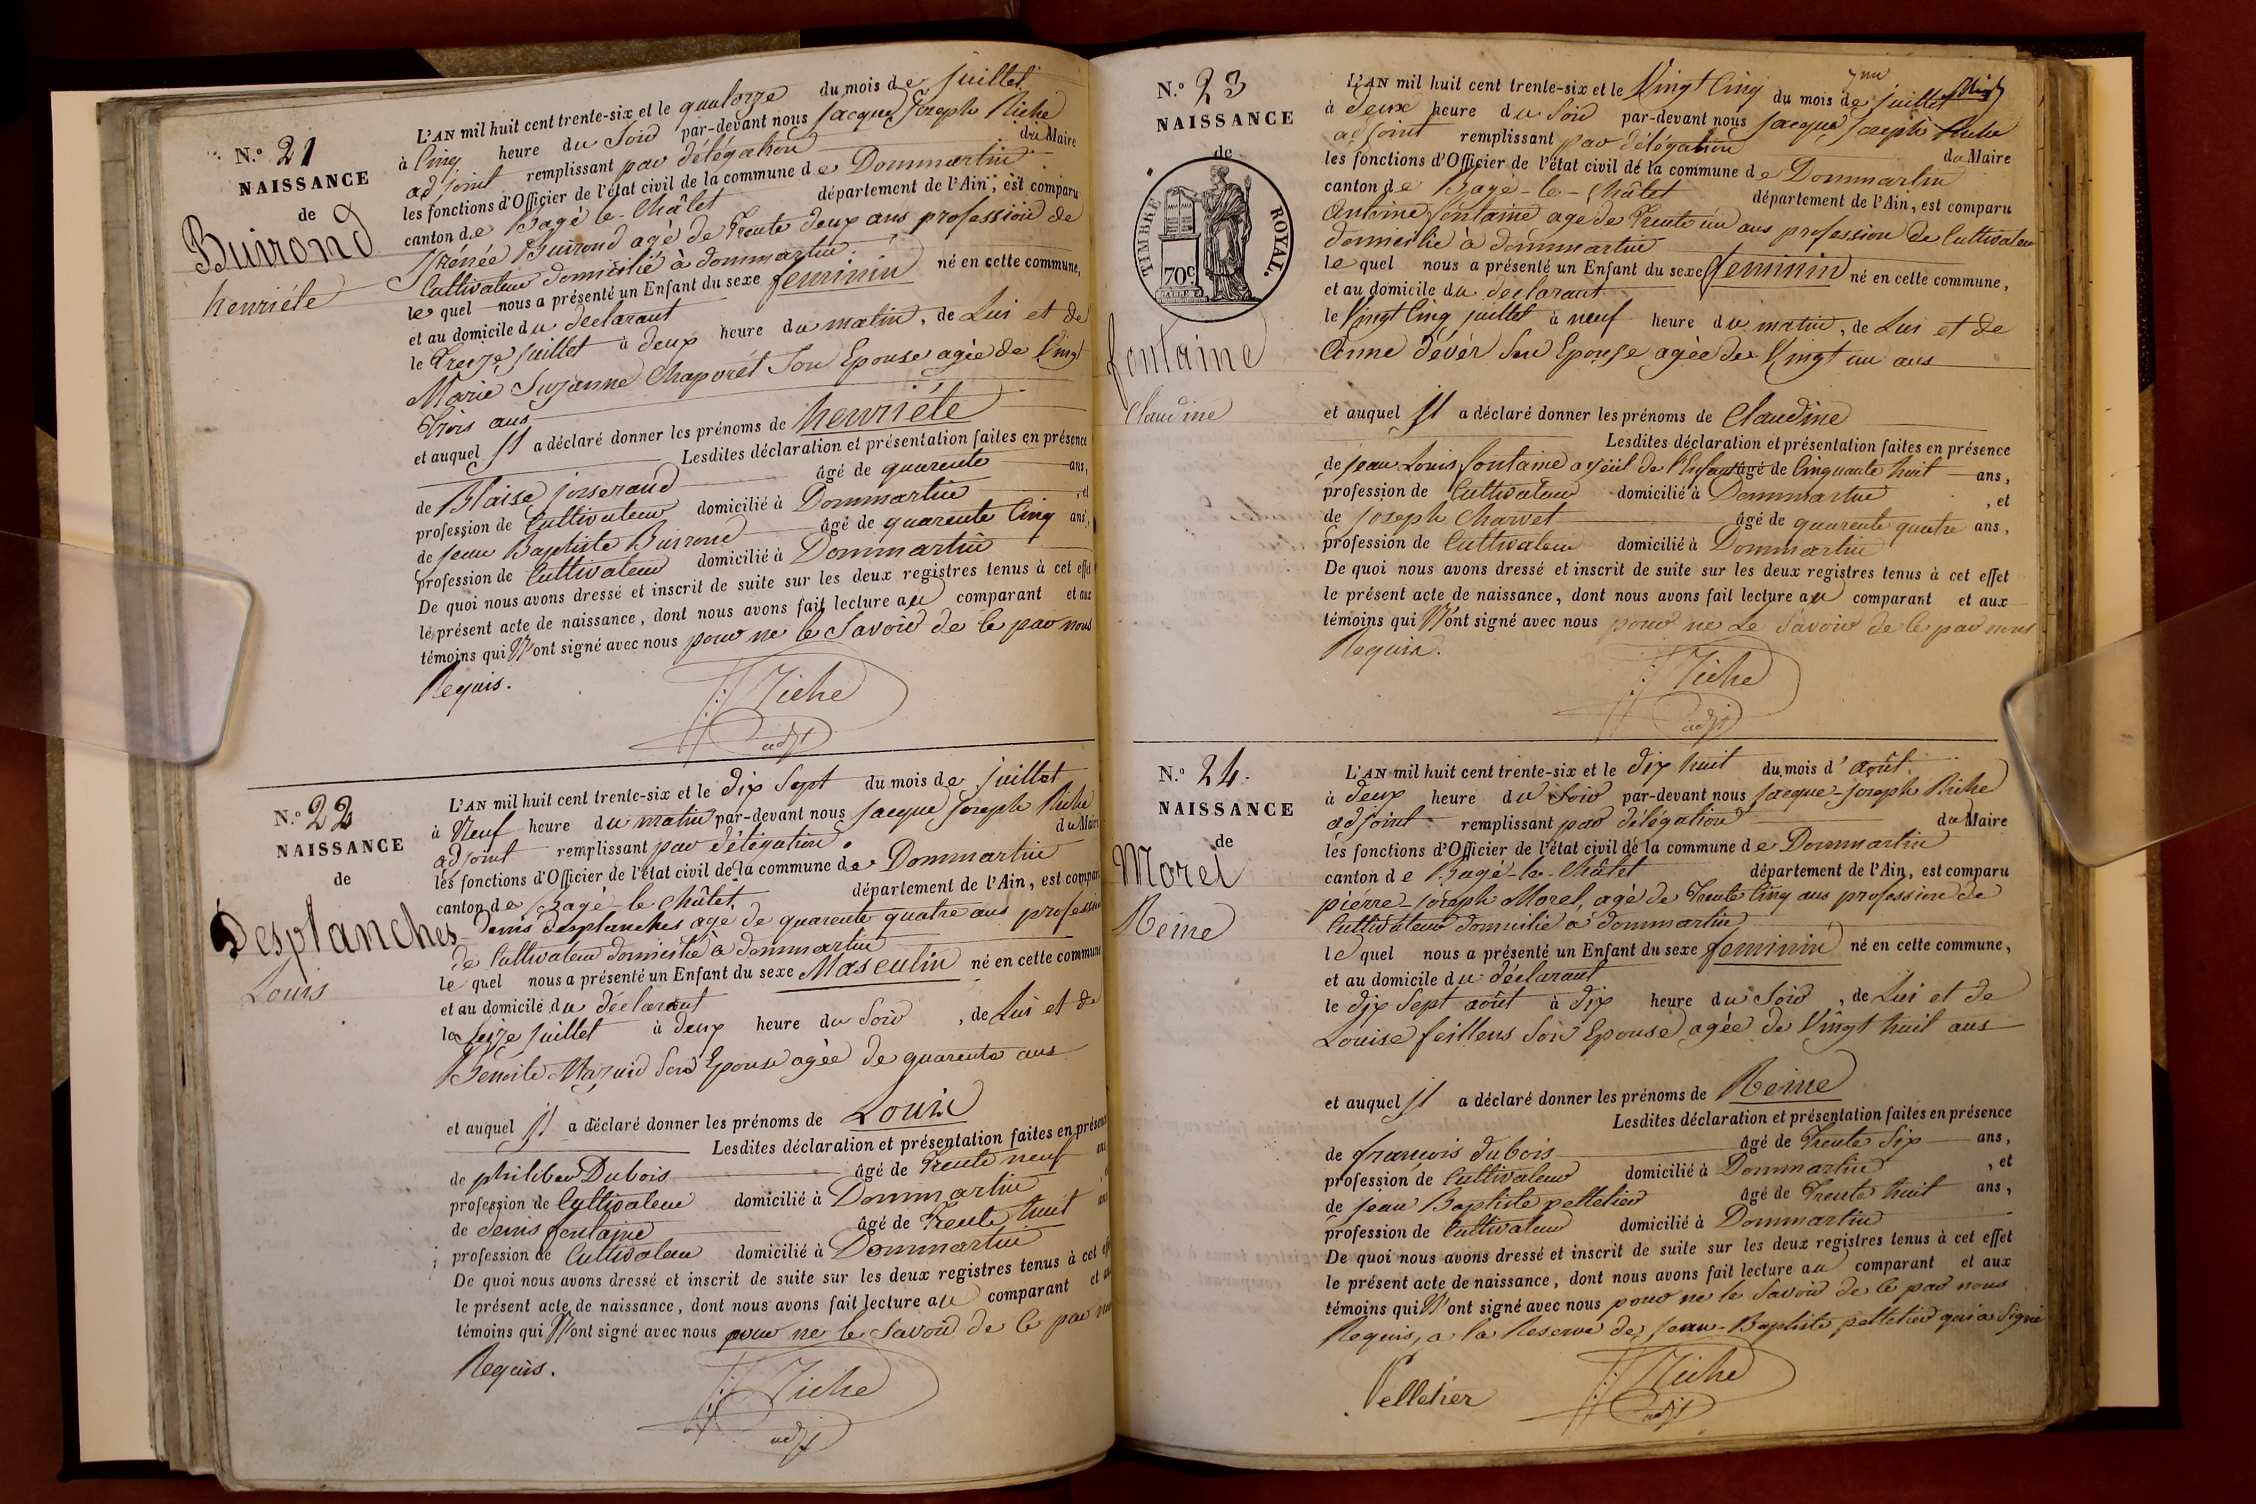 N.º 21
NAISSANCE
de
Buirond
henriéte
L'AN mil huit cent trente-six et le quatorze du mois de juillet
à Cinq heure du Soir par-devant nous Jacque Joseph Riche
adjoint remplissant par délégation du Maire
les fonctions d'Officier de l'état civil de la commune de Dommartin
canton de Bagé-le-Châlet département de l'Ain, est comparu
Irénée Buirond agé de Trente deux ans profession de
Cultivateur domicilié à dommartin
le quel nous a présenté un Enfant du sexe feminin né en cette commune,
et au domicile du déclarant
le Treize juillet à deux heure du matin, de Lui et de
Marie Suzanne Chaporét Son Epouse agée de Vingt
Trois ans
et auquel Il a déclaré donner les prénoms de henriéte
Lesdites déclaration et présentation faites en présence
de Blaise josserand âgé de quarente ans,
profession de Cultivateur domicilié à Dommartin , et
de jean Baptiste Buirond âgé de quarente Cinq ans,
profession de Cultivateur domicilié à Dommartin
De quoi nous avons dressé et inscrit de suite sur les deux registres tenus à cet effet
le présent acte de naissance, dont nous avons fait lecture au comparant et aux
témoins qui N'ont signé avec nous pour ne le Savoir de ce par nous
Requis.
Riche
adjt
N.º 22
NAISSANCE
de
Desplanches
Louis
L'AN mil huit cent trente-six et le dix Sept du mois de juillet
à Neuf heure du matin par-devant nous Jacque Joseph Riche
adjoint remplissant par délégation du Maire
les fonctions d'Officier de l'état civil de la commune de Dommartin
canton de Bagé-le-Châlet, département de l'Ain, est comparu
Denis desplanches agé de quarente quatre ans profession
de Cultivateur domicilié à dommartin
le quel nous a présenté un Enfant du sexe Masculin né en cette commune
et au domicile du déclarant
le Seize juillet à deux heure du Soir , de Lui et de
Benoite Mazuid Son Epouse agée de quarente ans
et auquel Il a déclaré donner les prénoms de Louis
Lesdites déclaration et présentation faites en présence
de philiber Dubois âgé de Trente neuf ans
profession de Cultivateur domicilié à Dommartin
de denis fontaine âgé de Trente huit ans
profession de Cultivateur domicilié à Dommartin
De quoi nous avons dressé et inscrit de suite sur les deux registres tenus à cet effet
le présent acte de naissance, dont nous avons fait lecture au comparant et aux
témoins qui N'ont signé avec nous pour ne le Savoir de ce par nous
Requis.
Riche
adjt
N.º 23
NAISSANCE
de
TIMBRE ROYAL.
70c
fontaine
Claudine
L'AN mil huit cent trente-six et le Vingt Cinq du mois de juillet
à deux heure du Soir par-devant nous Jacque Joseph Riche
adjoint remplissant par délégation du Maire
les fonctions d'Officier de l'état civil de la commune de Dommartin
canton de Bagé-le-Châlet département de l'Ain, est comparu
Antoine fontaine agé de Trente un ans profession de Cultivateur
domicilié à dommartin
le quel nous a présenté un Enfant du sexe feminin né en cette commune,
et au domicile du declarant
le Vingt Cinq juillet à neuf heure du matin, de Lui et de
Anne dévér Son Epouse agée de Vingt un ans
et auquel Il a déclaré donner les prénoms de Claudine
Lesdites déclaration et présentation faites en présence
de jean Louis fontaine ayeül de l'Enfant âgé de Cinquante huit ans,
profession de Cultivateur domicilié à Dommartin , et
de joseph Charvet âgé de quarente quatre ans,
profession de Cultivateur domicilié à Dommartin
De quoi nous avons dressé et inscrit de suite sur les deux registres tenus à cet effet
le présent acte de naissance, dont nous avons fait lecture au comparant et aux
témoins qui N'ont signé avec nous pour ne Le Savoir de ce par nous
Requis.
Riche
adjt
N.º 24.
NAISSANCE
de
Morel
Reine
L'AN mil huit cent trente-six et le dix huit du mois d'août.
à deux heure du Soir par-devant nous Jacque-Joseph Riche
adjoint remplissant par délégation du Maire
les fonctions d'Officier de l'état civil de la commune de Dommartin
canton de Bagé-le-Châlet département de l'Ain, est comparu
piérre-joséph Morel, agé de Trente Cinq ans profession de
Cultivateur domicilié à dommartin
le quel nous a présenté un Enfant du sexe feminin né en cette commune,
et au domicile du déclarant
le dix Sept août à dix heure du Soir , de Lui et de
Louise feillens Son Epouse agée de Vingt huit ans
et auquel Il a déclaré donner les prénoms de Reine
Lesdites déclaration et présentation faites en présence
de françois dubois âgé de Trente Six ans,
profession de Cultivateur domicilié à Dommartin , et
de jean Baptiste pelletier âgé de Trente huit ans,
profession de Cultivateur domicilié à Dommartin
De quoi nous avons dressé et inscrit de suite sur les deux registres tenus à cet effet
le présent acte de naissance, dont nous avons fait lecture au comparant et aux
témoins qui N'ont signé avec nous pour ne le Savoir de ce par nous
Requis, a la Reserve de jean-Baptiste pelletier qui a Signé
Pelletier
Riche
adjt